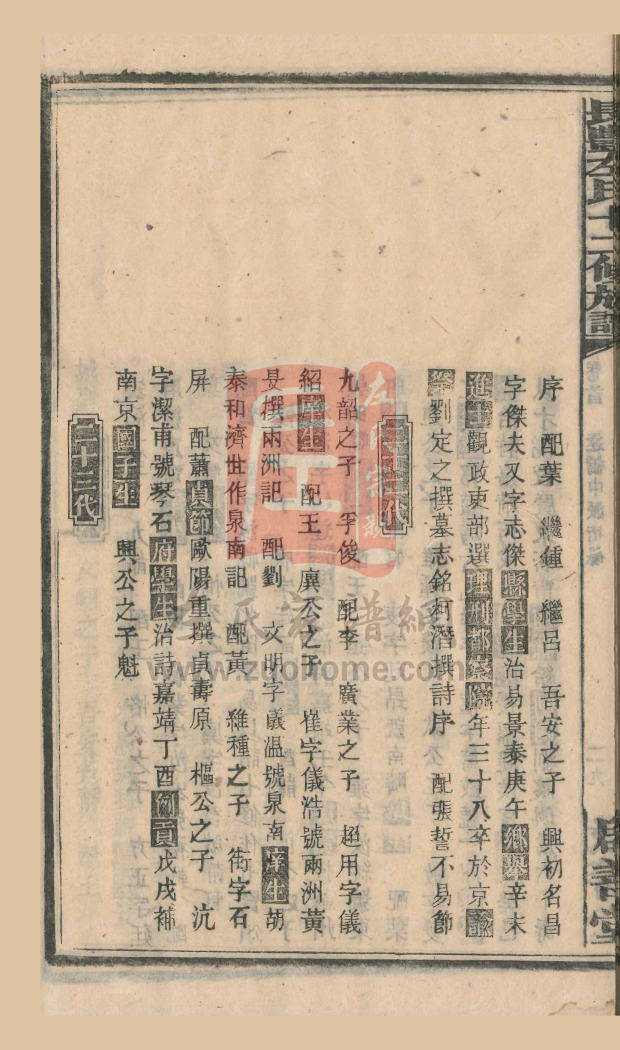 長豐左氏十二修族譜
序　配葉　繼鍾　繼呂　吾安之子　興初名昌
字傑夫又字志傑縣學生治易景泰庚午鄉舉辛未
進士觀政吏部選理刑都察院年三十八卒於京
劉定之撰墓志銘柯潛撰詩序　配張誓不易節
二十二代
九韶之子　孚俊　配李　廣業之子　超用字儀
紹庠生　配王　廣公之子　崔字儀浩號兩洲黃
旻撰兩洲記　配劉　文明字儀溫號泉南庠生胡
泰和濟世作泉南記　配黃　維種之子　衡字石
屏　配蕭貞節歐陽重撰貞壽原　樞公之子　沆
字潔甫號琴石府學生治詩嘉靖丁酉例貢戊戌補
南京國子生　興公之子魁
二十三代
www.zgohome.com